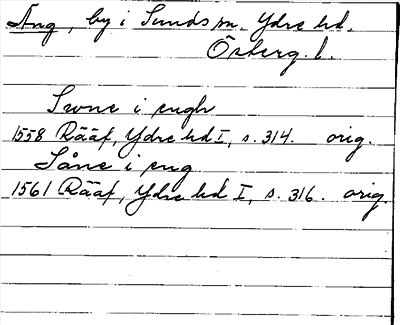 Äng, by i Sunds sn. Ydre hd.
Österg. l.
Swne i engh
1558 Rääf, Ydre hd I, s. 314. orig.
Såne i eng
1561 Rääf, Ydre hd I, s. 316. orig.